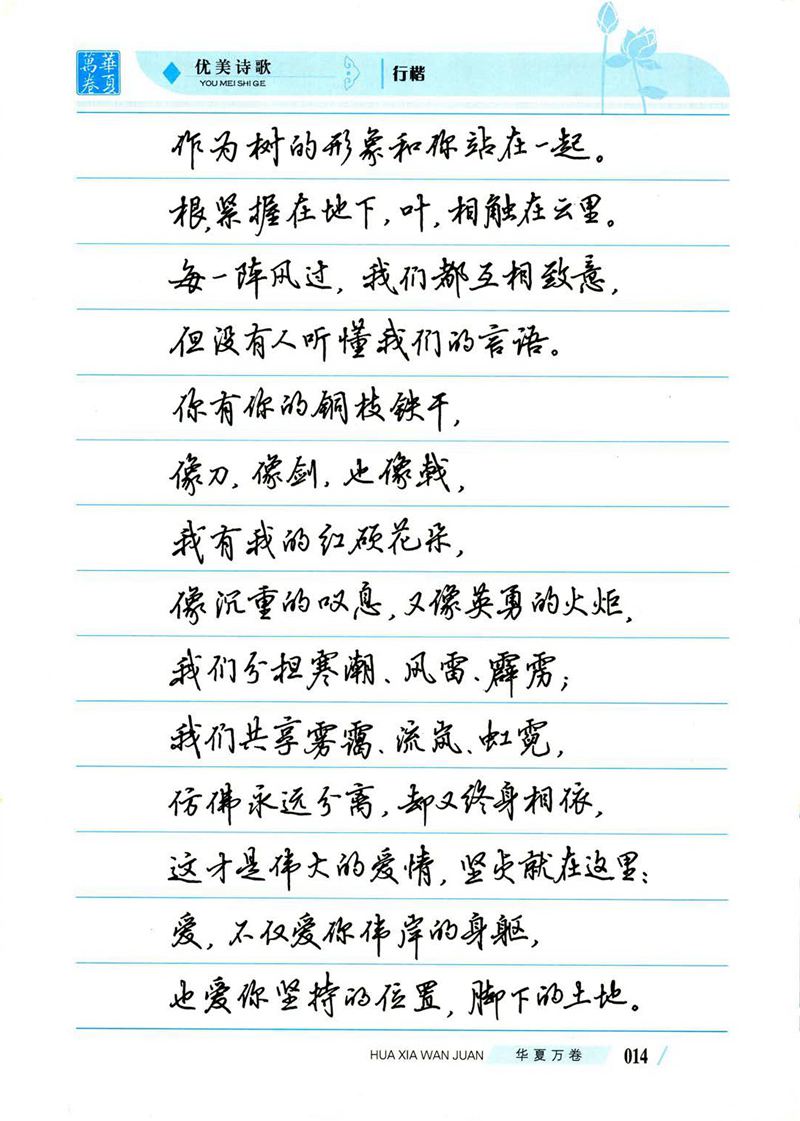 華夏
萬卷
优美诗歌
YOU MEI SHI GE
行楷
作为树的形象和你站在一起。
根,紧握在地下,叶,相触在云里。
每一阵风过,我们都互相致意,
但没有人听懂我们的言语。
你有你的铜枝铁干,
像刀,像剑,也像戟,
我有我的红硕花朵,
像沉重的叹息,又像英勇的火炬,
我们分担寒潮、风雷、霹雳;
我们共享雾霭、流岚、虹霓,
仿佛永远分离,却又终身相依,
这才是伟大的爱情,坚贞就在这里:
爱,不仅爱你伟岸的身躯,
也爱你坚持的位置,脚下的土地。
HUA XIA WAN JUAN
华夏万卷
014